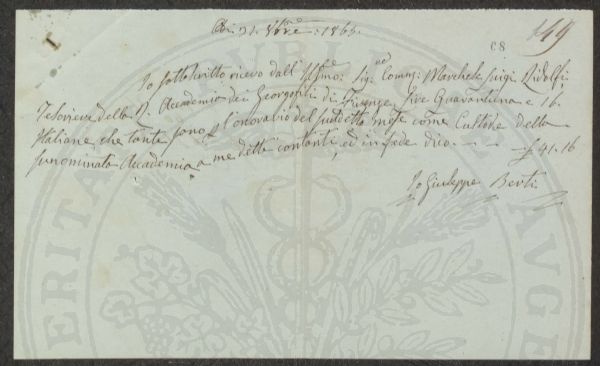 Adi 31. 8bre = 1865.
68 149
Io sottoscritto ricevo dall' Illmo: Sig: Comm: Marchese Luigi Ridolfi
Tesoriere della R. Accademia dei Georgofili di Firenze Lire Quarantuna e 16.
Italiane che tante sono p l'onorario del sudetto mese come Custode della
sunominata Accademia a me detti contanti, ed in fede dico. - - - £ 41. 16
Io Giuseppe Berti